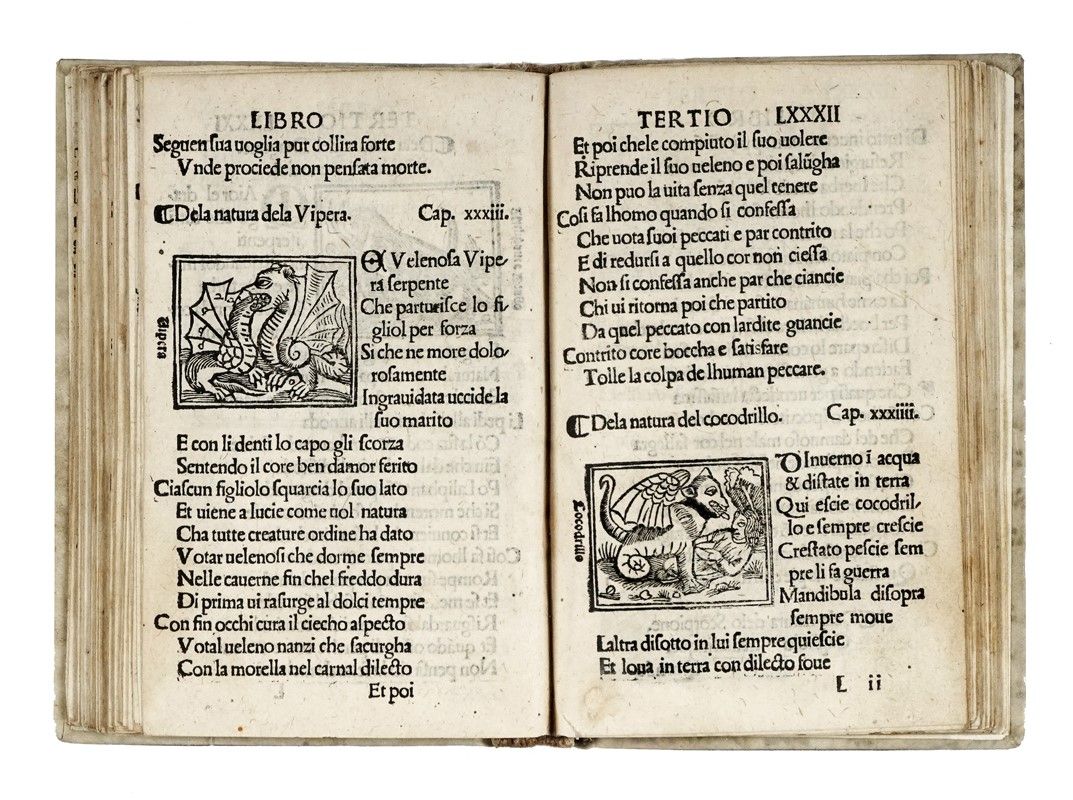 LIBRO
Seguen sua uoglia pur collira forte
Vnde prociede non pensata morte.
Dela natura dela Vipera. Cap. xxxiii.
Vipera
EA Velenosa Vipe-
ra serpente
Che parturisce lo fi-
gliol per forza
Si che ne more dolo-
rosamente
Ingrauidata uccide la
suo marito
E con li denti lo capo gli scorza
Sentendo il core ben damor ferito
Ciascun figliolo squarcia lo suo lato
Et uiene a lucie come uol natura
Cha tutte creature ordine ha dato
Votar uelenosi che dorme sempre
Nelle cauerne fin chel freddo dura
Di prima ui rasurge al dolci tempre
Con fin occhi cura il ciecho aspecto
Votal ueleno nanzi che sacurgha
Con la morella nel carnal dilecto
Et poi
TERTIO LXXXII
Et poi chele compiuto il suo uolere
Riprende il suo ueleno e poi salūgha
Non puo la uita senza quel tenere
Cosi fa lhomo quando si confessa
Che uota suoi peccati e par contrito
E di redursi a quello cor non ciessa
Non si confessa anche par che ciancie
Chi ui ritorna poi che partito
Da quel peccato con lardite guancie
Contrito core boccha e satisfare
Tolle la colpa de lhuman peccare.
Dela natura del cocodrillo. Cap. xxxiiii.
Cocodrillo
DInuerno ī acqua
& distate in terra
Qui escie cocodril-
lo e sempre crescie
Crestato pescie sem
pre li fa guerra
Mandibula disopra
sempre moue
Laltra disotto in lui sempre quiescie
Et loua in terra con dilecto foue
L ii